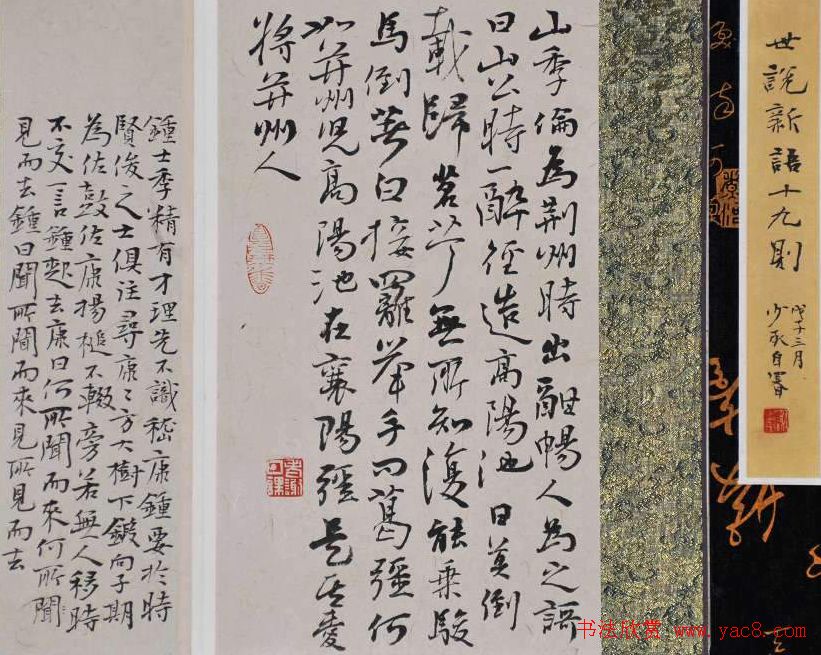 世說新語十九則
戊子三月
少承自署
山季倫為荊州時出酣暢人為之語
曰山公時一醉徑造高陽池日莫倒
載歸茗艼無所知復能乘駿
馬倒著白接䍦舉手問葛彊何
如并州兒高陽池在襄陽彊是其愛
將并州人
鍾士季精有才理先不識嵇康鍾要於時
賢俊之士俱往尋康〻方大樹下鍛向子期
為佐鼓佐康揚槌不輟旁若無人移時
不交一言鍾起去康曰何所聞而來何所聞
見而去鍾曰聞所聞而來見所見而去
书法欣赏 www.yac8.com